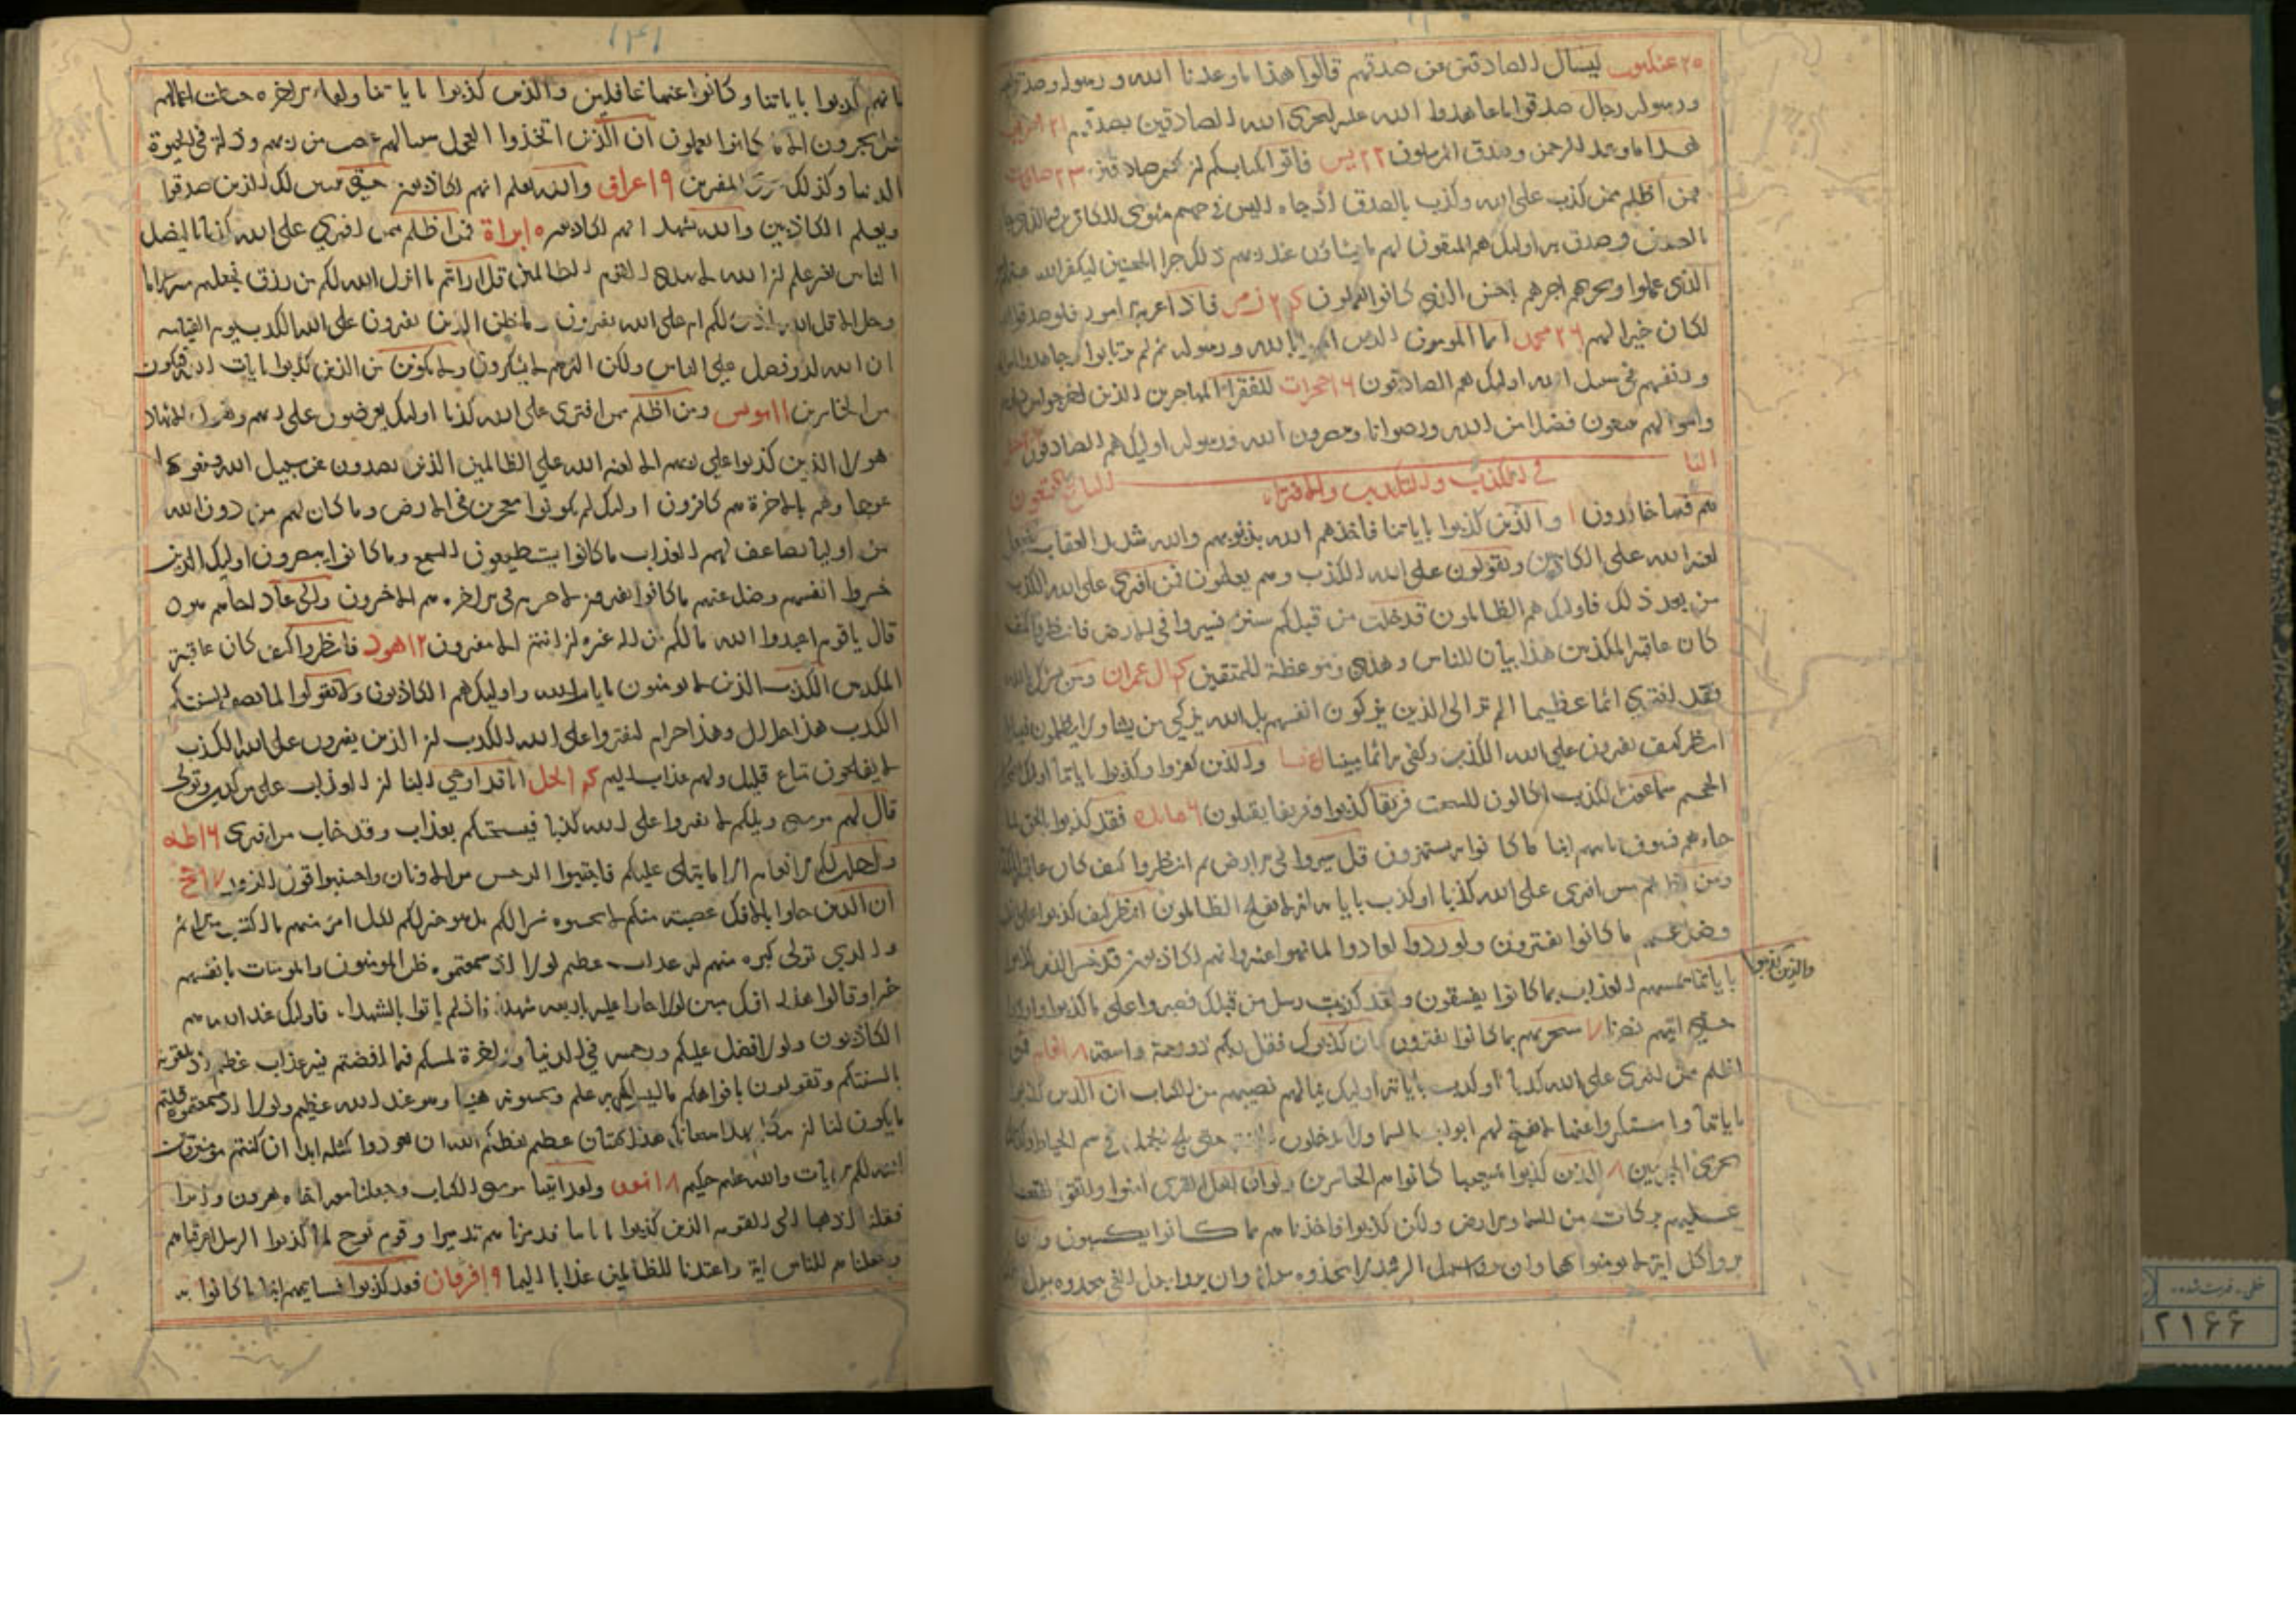 ٢٥ عنكبوت ليسال الصادقين عن صدقهم قالوا هذا ما وعدنا الله ورسوله وصدق
ورسوله رجال صدقوا ما عاهدوا الله عليه ليجزى الله الصادقين بصدقهم ٢١
هذا ما وعد الرحمن وصدق المرسلون ٢٢ يس فاتوا بكتابكم ان كنتم صادقين ٢٣ صافات
فمن اظلم ممن كذب على الله وكذب بالصدق اذ جاءه اليس فى جهنم مثوى للكافرين والذى جا
بالصدق وصدق به اوليك هم المتقون لهم ما يشاؤن عند ربهم ذلك جزا المحسنين ليكفر الله عنهم
الذى عملوا ويجزيهم اجرهم باحسن الذى كانوا يعملون زمر فاذا عزم الامر فلو صدقوا
لكان خيرا لهم ٢٦ محمد انما المومنون الذين امنوا بالله ورسوله ثم لم يرتابوا وجاهدوا
وانفسهم فى سبيل الله اوليك هم الصادقون حجرات للفقراء المهاجرين الذين اخرجوا من
واموالهم يبتغون فضلا من الله ورضوانا وينصرون الله ورسوله اوليك هم الصادقون
فى الكذب والتكذيب والافتراء
هم فيها خالدون والذين كذبوا باياتنا فاخذهم الله بذنوبهم والله شديد العقاب
لعنة الله على الكاذبين ويقولون على الله الكذب وهم يعلمون فمن افترى على الله الكذب
من بعد ذلك فاوليك هم الظالمون قد خلت من قبلكم سنن فسيروا فى الارض فانظروا كيف
كان عاقبة المكذبين هذا بيان للناس وهدى وموعظة للمتقين ال عمران ومن يشرك بالله
فقد افترى اثما عظيما الم تر الى الذين يزكون انفسهم بل الله يزكى من يشا ولا يظلمون فتيلا
انظر كيف يفترون على الله الكذب وكفى به اثما مبينا نسا والذين كفروا وكذبوا باياتنا اوليك
الجحيم سماعون للكذب اكالون للسحت فريقا كذبوا وفريقا يقتلون ٦ مايده فقد كذبوا بالحق لما
جاءهم فسوف ياتيهم انبا ما كانوا به يستهزون قل سيروا فى الارض ثم انظروا كيف كان عاقبة
ومن اظلم ممن افترى على الله كذبا او كذب باياته انه لا يفلح الظالمون انظر كيف كذبوا على
وضل عنهم ما كانوا يفترون ولو ردوا لعادوا لما نهوا عنه وانهم لكاذبون قد خسر الذين كذبوا
والذين كذبوا
باياتنا يمسهم العذاب بما كانوا يفسقون ولقد كذبت رسل من قبلك فصبروا على ما كذبوا واوذوا
حتى اتيهم نصرنا سيجزيهم بما كانوا يفترون فان كذبوك فقل ربكم ذو رحمة واسعة ٨ فمن
اظلم ممن افترى على الله كذبا او كذب باياته اوليك ينالهم نصيبهم من الكتاب ان الذين كذبوا
باياتنا واستكبروا عنها لا تفتح لهم ابواب السما ولا يدخلون الجنة حتى يلج الجمل فى سم الخياط وكذلك
نجزى المجرمين ٨ الذين كذبوا شعيبا كانوا هم الخاسرين ولو ان اهل القرى امنوا واتقوا لفتحنا
عليهم بركات من السما والارض ولكن كذبوا فاخذناهم بما كانوا يكسبون وان
يروا كل اية لا يومنوا بها وان يروا سبيل الرشد لا يتخذوه سبيلا وان يروا سبيل الغى يتخذوه سبيلا
١٣١
بانهم كذبوا باياتنا وكانوا عنها غافلين والذين كذبوا باياتنا ولقاء الاخرة حبطت اعمالهم
هل يجزون الا ما كانوا يعملون ان الذين اتخذوا العجل سينالهم غضب من ربهم وذلة فى الحيوة
الدنيا وكذلك نجزى المفترين ٩ اعراف والله يعلم انهم لكاذبون حتى يتبين لك الذين صدقوا
ويعلم الكاذبين والله يشهد انهم لكاذبون ١٠ براة فمن اظلم ممن افترى على الله كذبا ليضل
الناس بغير علم ان الله لا يهدى القوم الظالمين قل ارايتم ما انزل الله لكم من رزق فجعلتم منه حراما
وحلالا قل الله اذن لكم ام على الله تفترون وما ظن الذين يفترون على الله الكذب يوم القيامه
ان الله لذو فضل على الناس ولكن اكثرهم لا يشكرون ولا تكونن من الذين كذبوا بايات الله فتكون
من الخاسرين ١١ يونس ومن اظلم ممن افترى على الله كذبا اوليك يعرضون على ربهم ويقول الاشهاد
هولا الذين كذبوا على ربهم الا لعنة الله على الظالمين الذين يصدون عن سبيل الله ويبغونها
عوجا وهم بالاخرة هم كافرون اوليك لم يكونوا معجزين فى الارض وما كان لهم من دون الله
من اوليا يضاعف لهم العذاب ما كانوا يستطيعون السمع وما كانوا يبصرون اوليك الذين
خسروا انفسهم وضل عنهم ما كانوا يفترون لا جرم انهم فى الاخرة هم الاخسرون والى عاد اخاهم هود
قال يا قوم اعبدوا الله ما لكم من اله غيره ان انتم الا مفترون ١٢ هود فانظروا كيف كان عاقبة
المكذبين الكذب الذين لا يومنون بايات الله واوليك هم الكاذبون ولا تقولوا لما تصف السنتكم
الكذب هذا حلال وهذا حرام لتفتروا على الله الكذب ان الذين يفترون على الله الكذب
لا يفلحون متاع قليل ولهم عذاب اليم النحل انا قد اوحى الينا ان العذاب على من كذب وتولى
قال لهم موسى ويلكم لا تفتروا على الله كذبا فيسحتكم بعذاب وقد خاب من افترى ١٦ طه
واحلت لكم الانعام الا ما يتلى عليكم فاجتنبوا الرجس من الاوثان واجتنبوا قول الزور ١٧ حج
ان الذين جاوا بالافك عصبة منكم لا تحسبوه شرا لكم بل هو خير لكم لكل امرئ منهم ما اكتسب من الاثم
والذى تولى كبره منهم له عذاب عظيم لولا اذ سمعتموه ظن المومنون والمومنات بانفسهم
خيرا وقالوا هذا افك مبين لولا جاوا عليه باربعة شهدا فاذ لم ياتوا بالشهدا فاوليك عند الله هم
الكاذبون ولولا فضل عليكم ورحمته فى الدنيا والاخرة لمسكم فيما افضتم فيه عذاب عظيم اذ تلقونه
بالسنتكم وتقولون بافواهكم ما ليس لكم به علم وتحسبونه هينا وهو عند الله عظيم ولولا اذ سمعتموه قلتم
ما يكون لنا ان نتكلم بهذا سبحانك هذا بهتان عظيم يعظكم الله ان تعودوا لمثله ابدا ان كنتم مومنين
الله لكم الايات والله عليم حكيم ١٨ نور ولقد اتينا موسى الكتاب وجعلنا معه اخاه هرون وزيرا
فقلنا اذهبا الى القوم الذين كذبوا باياتنا فدمرناهم تدميرا وقوم نوح لما كذبوا الرسل اغرقناهم
وجعلناهم للناس اية واعتدنا للظالمين عذابا اليما ١٩ فرقان فقد كذبوا فسياتيهم انبا ما كانوا به
خطى - فهرست شده
١٢١٦٦